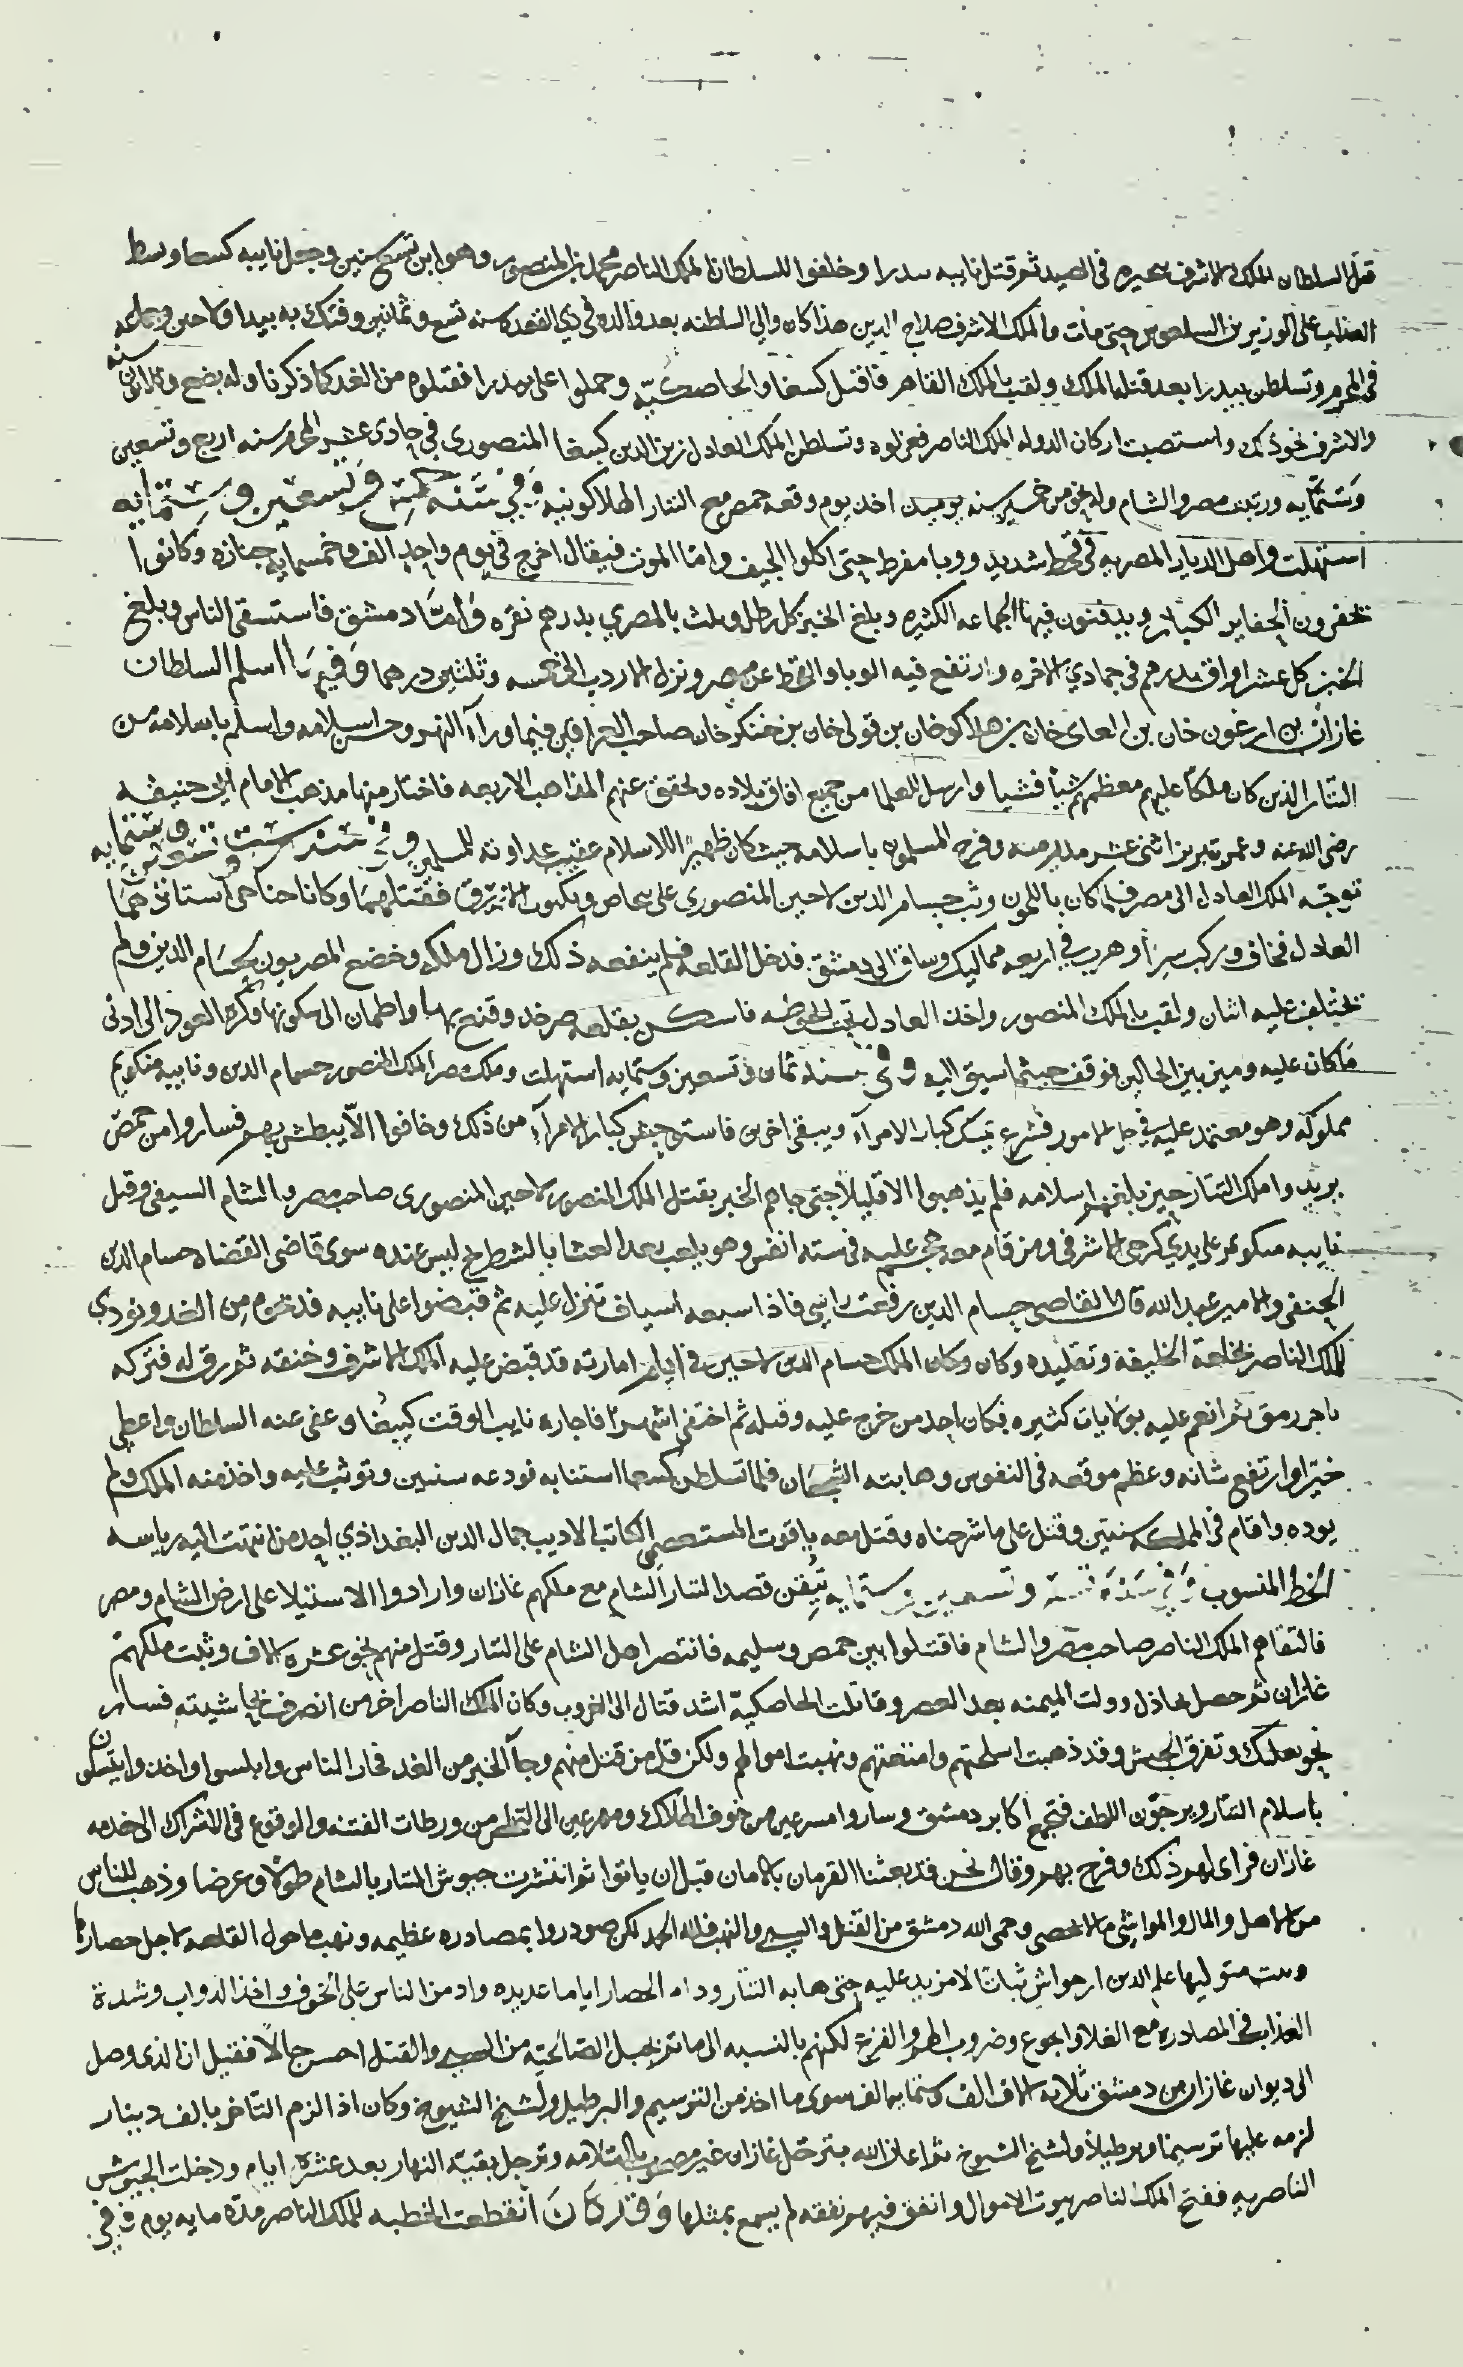 قتل السلطان الملك الاشرف بتحيره فى الصيد ثم قتل نايبه بيدرا وحلفوا للسلطان الملك الناصر محمد بن المنصور وهو ابن تسع سنين وجعل نايبه كتبغا وبسط
العذاب على الوزير بن السلعوس حتى مات والملك الاشرف صلاح الدين هذا كان ولي السلطنه بعد والده في ذي القعده سنه تسع وثمانين وفتك به بيدرا ولاجين وجماعه
فى المحرم وتسلطن بيدرا بعد قتله الملك ولقب بالملك القاهر فاقبل كتبغا والخاصكيّه وحملوا على بيدرا فقتلوه من الغد كما ذكرنا وله بضع وثلاثين سنه
والاشرف نحو ذلك واستصبت اركان الدوله الملك الناصر فعزلوه وتسلطن الملك العادل زين الدين كتبغا المنصورى فى حادى عشر المحرم سنه اربع وتسعين
وستمايه وزينت مصر والشام وله نحو من خمسين سنه يوميذ اخذ يوم وقعه حمص مع التتار الهلاكونيه وفي سنه خمس وتسعين وستمايه
استهلت واهل الديار المصريه فى قحط شديد ووبا مفرط حتى اكلوا الجيف وامّا الموت فيقال اخرج فى يوم واحد الف وخمسمايه جنازه وكانوا
يحفرون الحفاير الكبار ويدفنون فيها الجماعه الكثيره وبلغ الخبز كل رطل وثلث بالمصري بدرهم نقره وامّا دمشق فاستسقى الناس وبلغ
الخبز كل عشر اواق بدرهم فى جمادي الاخره وارتفع فيه الوبا والقحط عن مصر ونزل الاردب الى خمسه وثلثين درهما وفيها اسلم السلطان
غازان بن ارغون خان بن ابغاى خان بن هلاكو خان بن تولى خان بن جنكز خان صاحب العراقين فيما ورآ النهر وحسن اسلامه واسلم باسلامه من
التتار الذين كان ملكا عليهم معظمهم شيأ فشيا وارسل للعلما من جميع افاق بلاده وتحقق عنهم المذاهب الاربعه فاختار منها مذهب الامام ابى حنيفه
رضى الله عنه وعمر تبريز اثنى عشر مدرسه وفرح المسلمون باسلامه حيث كان ظهيرًا للاسلام عقيب عداوته للمسلمين وفى سنه ست وتسعين وستمايه
توجّه الملك العادل الى مصر فلما كان باللجون وثب حسام الدين لاجين المنصورى على بتخاص وبكتوت الازرق فقتلهما وكانا جناحى استاذهما
العادل فخاف وركب سرا وهرب فى اربعه مماليك وساق الى دمشق فدخل القلعه فلم ينفعه ذلك وزال ملكه وخضع المصريون لحسام الدين ولم
يختلف عليه اثنان ولقب بالملك المنصور واخذ العادل تحت الحوطه فاسكن بقلعه صرخد وقنع بها واطمان الى سكونها وكره العود الى ادنى
ما كان عليه وميز بين الحالين فوقف حيثما اسيق اليه وفى سنه ثمان وتسعين وستمايه استهلت وملك مصر الملك المنصور حسام الدين ونايبه منكوتمر
مملوكه وهو معتمد عليه فى جل الامور فشرع يمسك كبار الامرآ ويبقى اخرين فاستوحش كبار الامرآ من ذلك وخافوا الا يبطش بهم فساروا من حمص
يريدوا ملك التتار حين بلغهم اسلامه فلم يذهبوا الا قليلا حتى جاهم الخبر بقتل الملك المنصور لاجين المنصورى صاحب مصر والشام السيفى وقتل
نايبه منكوتمر على يدي كرجى الاشرفى ومن قام معه هجم عليه فى سته انفس وهو يلعب بعد العشا بالشطرنج ليس عنده سوى قاضى القضاه حسام الدين
الحنفى والامير عبد الله قال القاضى حسام الدين رفعت راسى فاذا سبعه اسياف تنزل عليه ثم قبضوا على نايبه فذبحوه من الغد ونودي
للملك الناصر بخلعة الخليفة وتقليده وكان وكان الملك حسام الدين لاجين فى ايام امارته قد قبض عليه الملك الاشرف وخنقه ثم رق له فتركه
باخر رمق ثم انعم عليه بولايات كثيره فكان احد من خرج عليه وقتله ثم اختفى اشهرا فاجاره نايب الوقت كتبغا وعفى عنه السلطان واعطى
خبزا وارتفع شانه وعظم موقعه فى النفوس وهابته الشجعان فلما تسلطن كتبغا استنابه نودعه سنتين وتوثب عليه واخذ منه الملك ولم
يوده واقام فى الملك سنتين وقتل على ما شرحناه وقتل معه ياقوت المستعصمى الكاتب الاديب جمال الدين البغداذي احد من انتهت اليه رياسه
الخط المنسوب وفى سنه تسع وتسعين وستمايه تيقن قصد التتار الشام مع ملكهم غازان وارادوا الاستيلا على ارض الشام ومصر
فالتقاهم الملك الناصر صاحب مصر والشام فاقتتلوا بين حمص وسلميه فانتصر اهل الشام على التتار وقتل منهم نحو عشره الاف وثبت ملكهم
غازان ثم حصل تخاذل وولت الميمنه بعد العصر وقاتلت الخاصكيه اشد قتال الى الغروب وكان الملك الناصر اخر من انصرف بحاشيته فسار
نحو بعلبك وتفرق الجيش وقد ذهبت اسلحتهم وامتعتهم ونهبت اموالهم ولكن قل من قتل منهم وجآ الخبر من الغد فحار الناس وابلسوا واخذوا يتسلون
باسلام التتار ويرجون اللطف فتجمع اكابر دمشق وساروا مسرعين من خوف الهلاك ومهرعين الى التخلص من ورطات الفتنه والوقوع فى الاشراك الى خدمه
غازان فراى لهم ذلك وفرح بهم وقال نحن قد بعثنا الفرمان بالامان قبل ان ياتوا ثم انتشرت جيوش التتار بالشام طولا وعرضا وذهب للناس
من الاهل والمال والمواشى ما لا يحصى وحمى الله دمشق من القتل والسبى والنهب فلله الحمد لكن صودروا بمصادره عظيمه ونهب ما حول القلعه لاجل حصارها
وثبت متوليها علم الدين ارجواش ثباتا لا مزيد عليه حتى هابه التتار ودام الحصار اياما عديده وادمن الناس على الخوف واخذ الدواب وشدة
العذاب فى المصادره مع الغلا والجوع وضروب الهم والفزع لكنهم بالنسبه الى ما تم بجبل الصالحيّه من السبى والقتل احسن حالا فقيل ان الذى وصل
الى ديوان غازان من دمشق ثلاثه الاف الف وستمايه الف سوى ما اخذ من الترسيم والبرطيل ولشيخ الشيوخ وكان اذ الزم التاجر بالف دينار
لزمه عليها ترسيما وبرطيلا ولشيخ الشيوخ ثم اعان الله بترحل غازان غير مصحوب بالسلامه وترحل بقيّه النهار بعد عشره ايام ودخلت الجيوش
الناصريه ففتح الملك الناصر بيوت الاموال وانفق فيهم نفقه لم يسمع بمثلها وقد كان انقطعت الخطبه للملك الناصر مدّه مايه يوم ففي